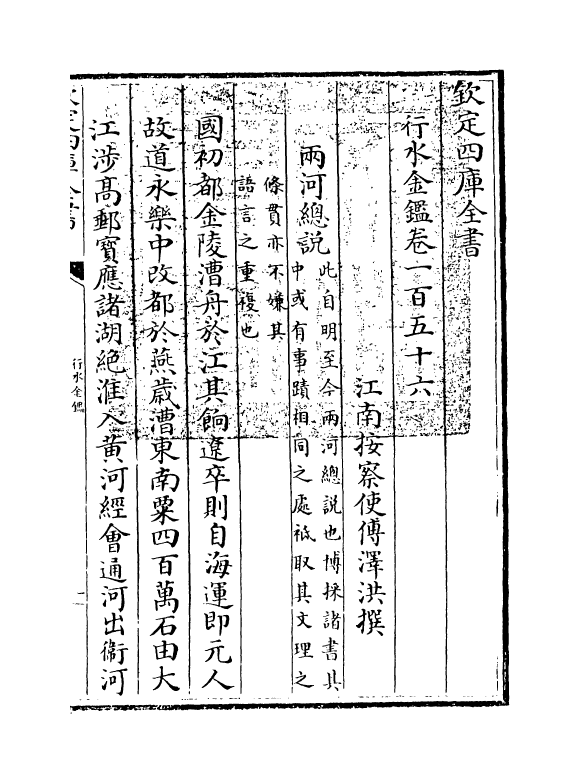 欽定四庫全書
行水金鑑卷一百五十六
江南按察使傅澤洪撰
兩河總說
此自明至今兩河總說也博採諸書其
中或有事蹟相同之處祗取其文理之
條貫亦不嫌其
語言之重複也
國初都金陵漕舟於江其餉遼卒則自海運即元人
故道永樂中改都於燕歲漕東南粟四百萬石由大
江涉髙郵寶應諸湖絶淮入黄河經會通河出衞河
行水金鑑